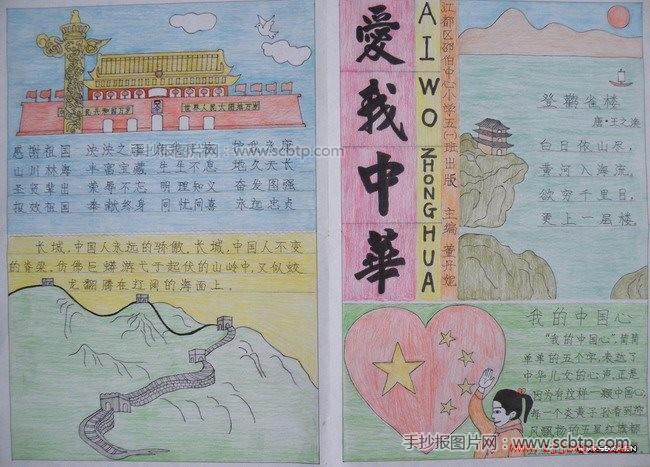 民共和国万岁 世界人民大团结万岁
感谢祖国 泱泱之
山川林 丰富宝藏 生生不息 地久天长
圣贤辈出 荣辱不忘 明理知义 奋发图强
报效祖国 奉献终身 同忧同喜 永远忠贞
长城,中国人永远的骄傲。长城,中国人不变
的脊梁。仿佛巨蟒游弋于起伏的山岭中,又似蛟
龙翻腾在红阔的海面上。
愛我中華
AI WO ZHONGHUA
江都区邵伯中心小学五(一)班出版 主编 董丹妮
登鹳雀楼
唐·王之涣
白日依山尽,
黄河入海流。
欲穷千里目,
更上一层楼。
我的中国心
"我的中国心",简简
单单的五个字,表达了
中华儿女的心声。正是
因为有这样一颗中国心,
每一个炎黄子孙看到迎
风飘扬的五星红旗都
手抄报图片网：www.scbtp.com
手抄报图片网：www.scbtp.com